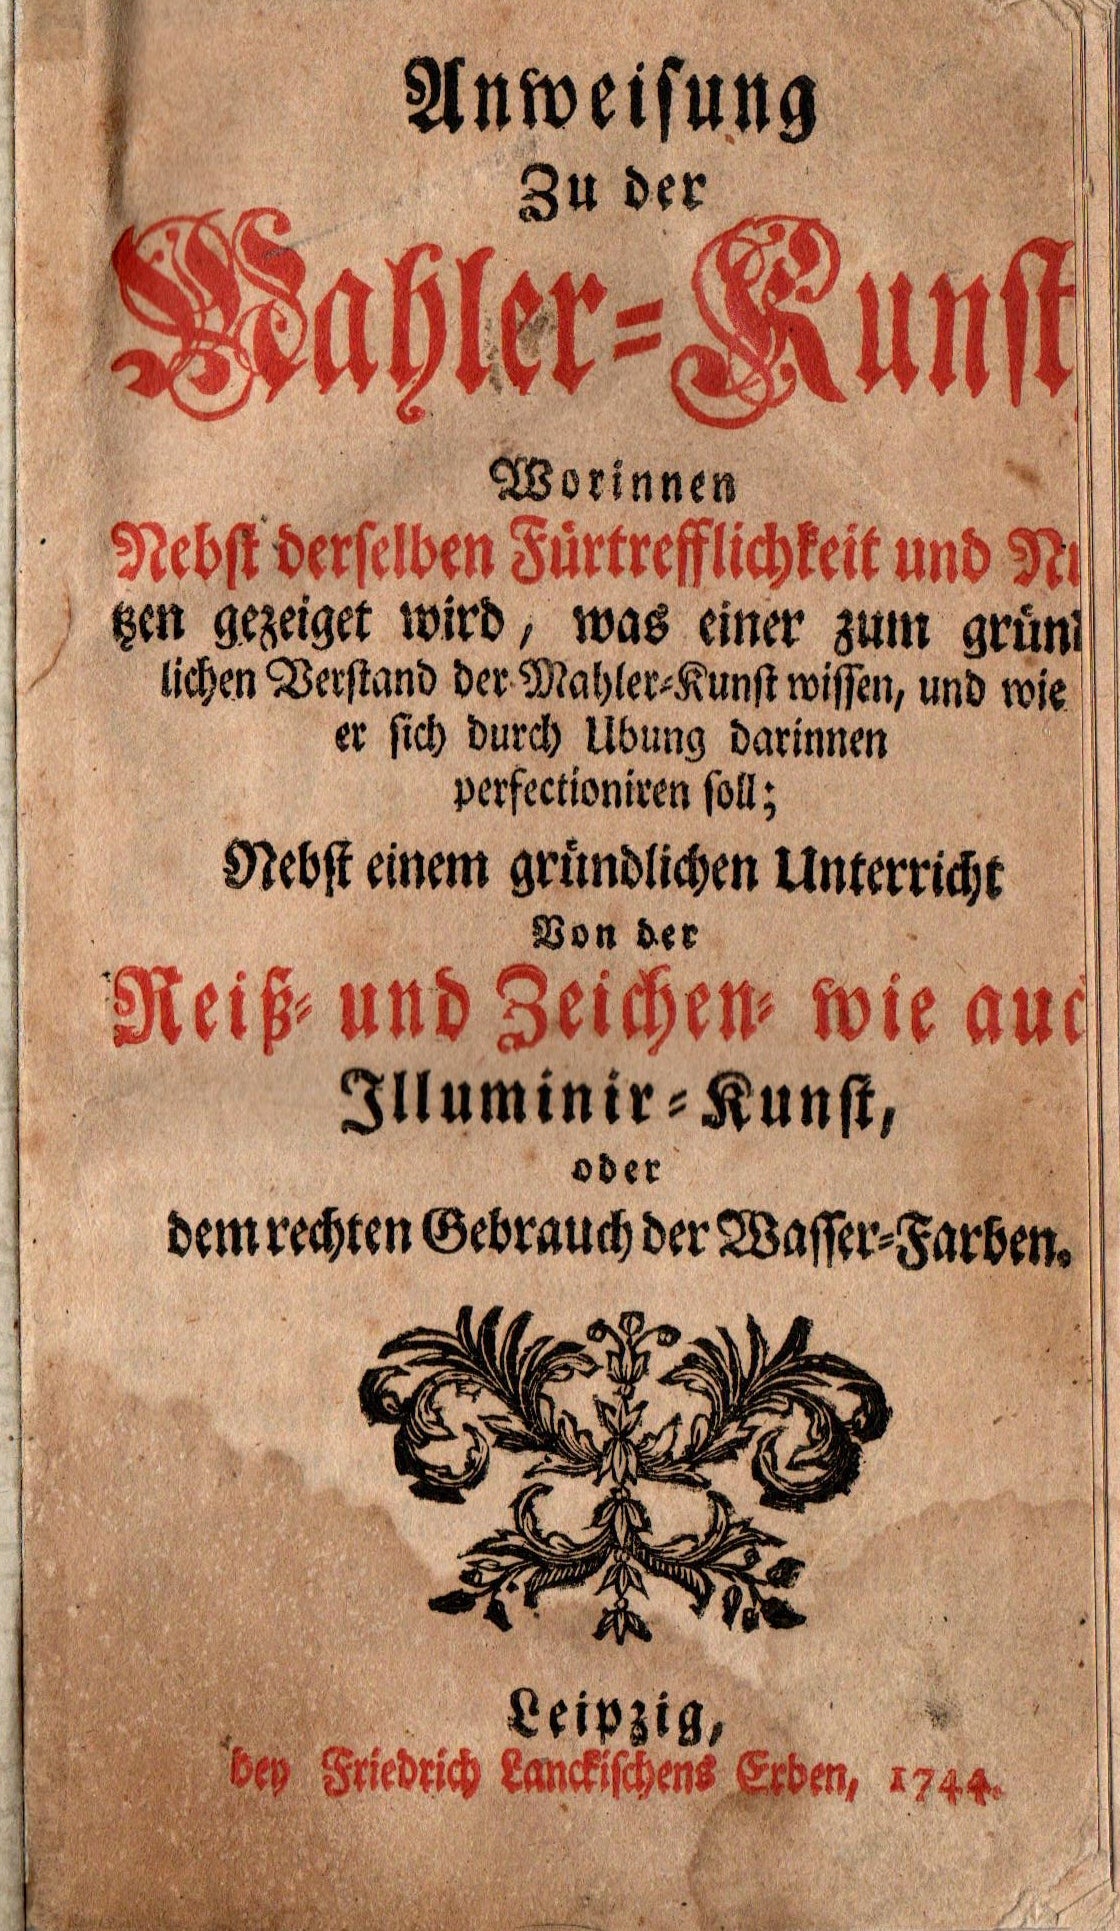 Anweisung
Zu der
Mahler-Kunst,
Worinnen
Nebst derselben Fürtrefflichkeit und Nu
tzen gezeiget wird, was einer zum gründ
lichen Verstand der Mahler-Kunst wissen, und wie
er sich durch Ubung darinnen
perfectioniren soll;
Nebst einem gründlichen Unterricht
Von der
Reiß- und Zeichen- wie auc
Illuminir-Kunst,
oder
dem rechten Gebrauch der Wasser-Farben.
Leipzig,
bey Friedrich Lanckischens Erben, 1744.